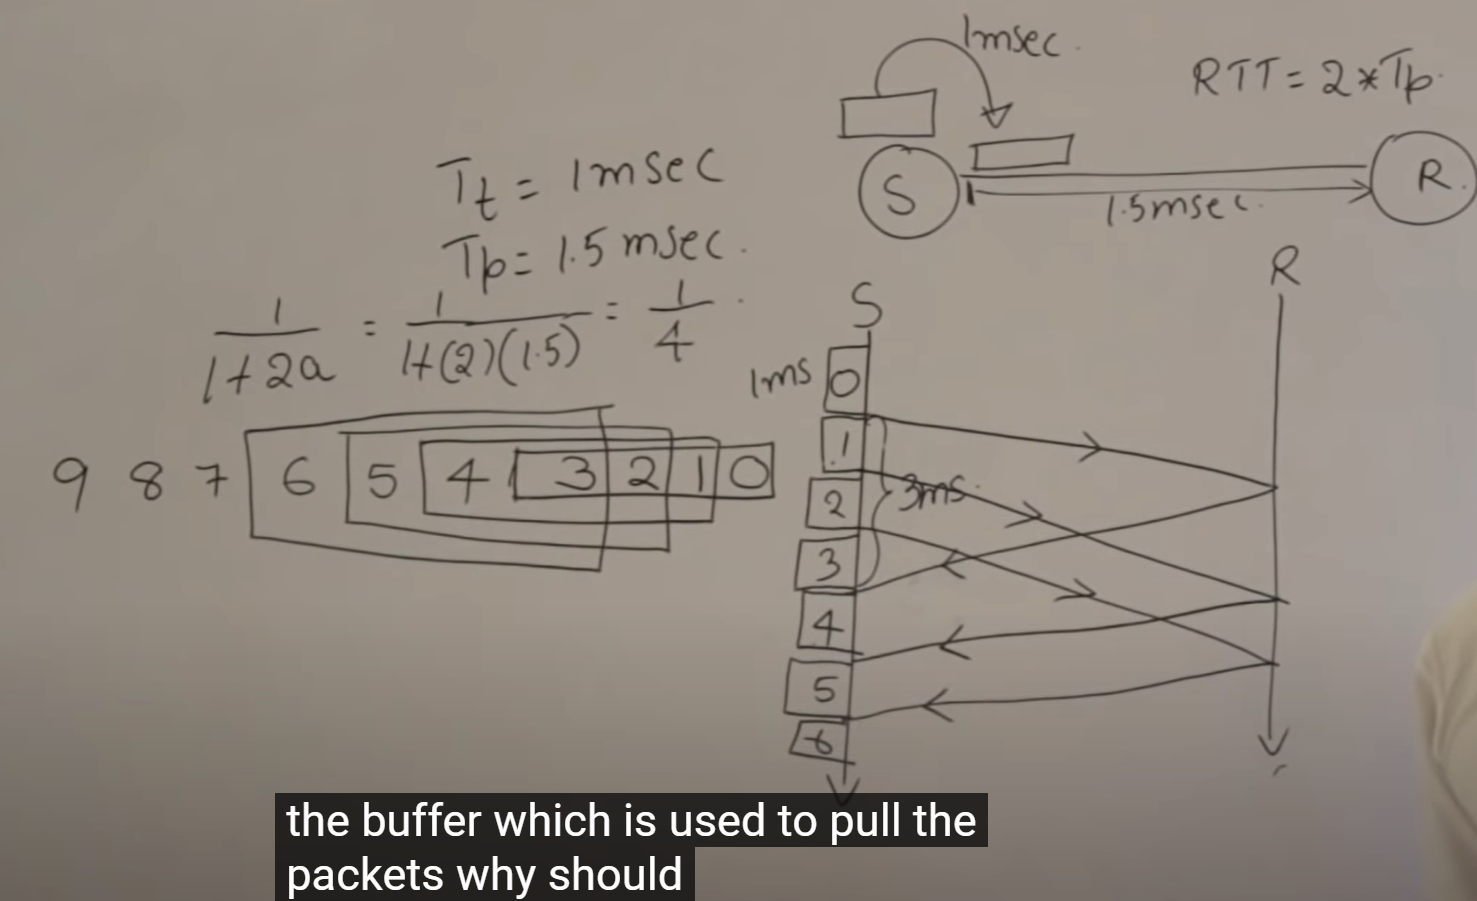 1msec.
RTT = 2*Tp.
S
R.
1.5msec.
Tt = 1msec
Tp = 1.5 msec.
1/1+2a = 1/1+(2)(1.5) = 1/4.
S
R
1ms
0
1
2
3
4
5
6
3ms
9 8 7 6 5 4 3 2 1 0
the buffer which is used to pull the
packets why should